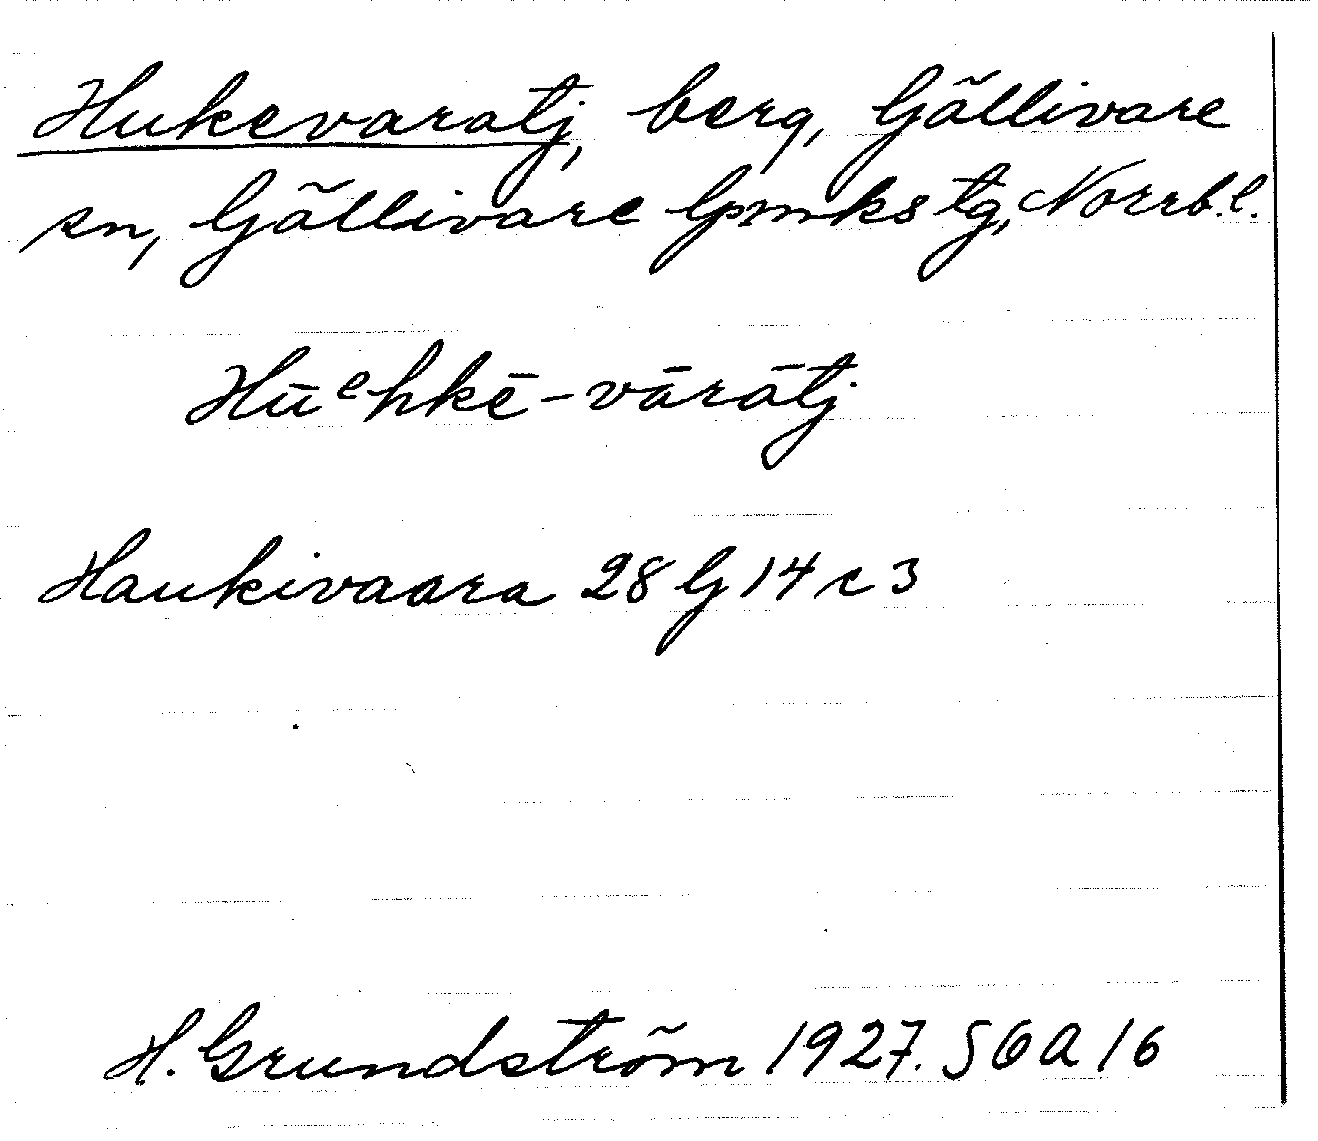 Hukevaratj, berg, Gällivare
sn, Gällivare lpmks tg, Norrb.l.
Hūᵉhkē-vārātj
Haukivaara 28 G 14 c 3
H. Grundström 1927. SOA 16